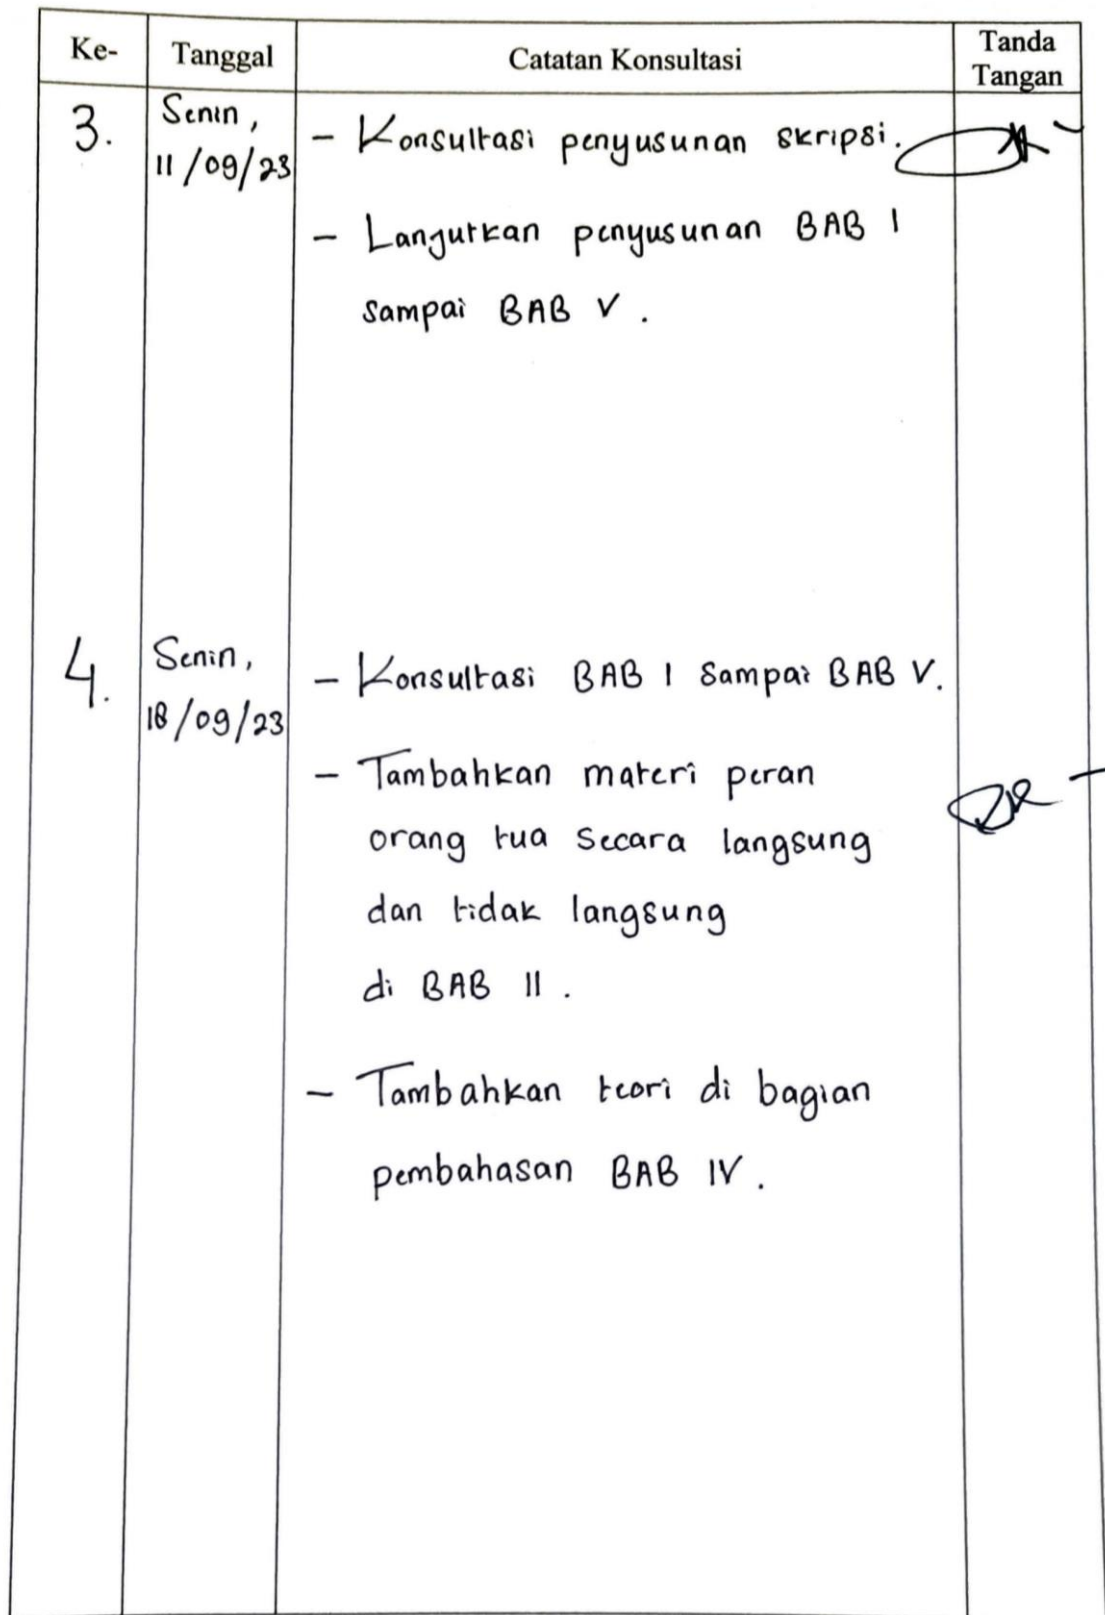 Ke-
Tanggal
Catatan Konsultasi
Tanda
Tangan
3.
Senin,
11/09/23
- Konsultasi penyusunan skripsi.
- Lanjutkan penyusunan BAB I
sampai BAB V.
4.
Senin,
18/09/23
- Konsultasi BAB I sampai BAB V.
- Tambahkan materi peran
orang tua secara langsung
dan tidak langsung
di BAB II.
- Tambahkan teori di bagian
pembahasan BAB IV.